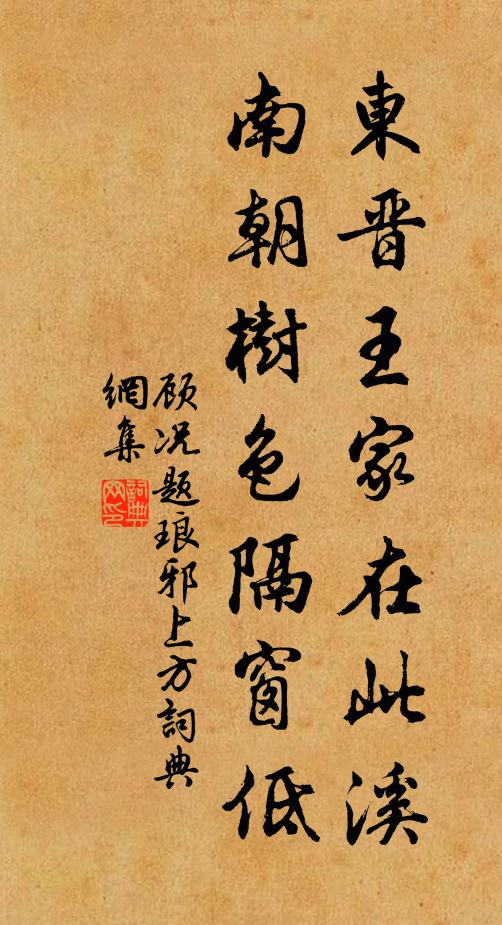 東晋王家在此溪
南朝樹色隔窗低
顾况题琅邪上方詞典
網集
詞典
网印